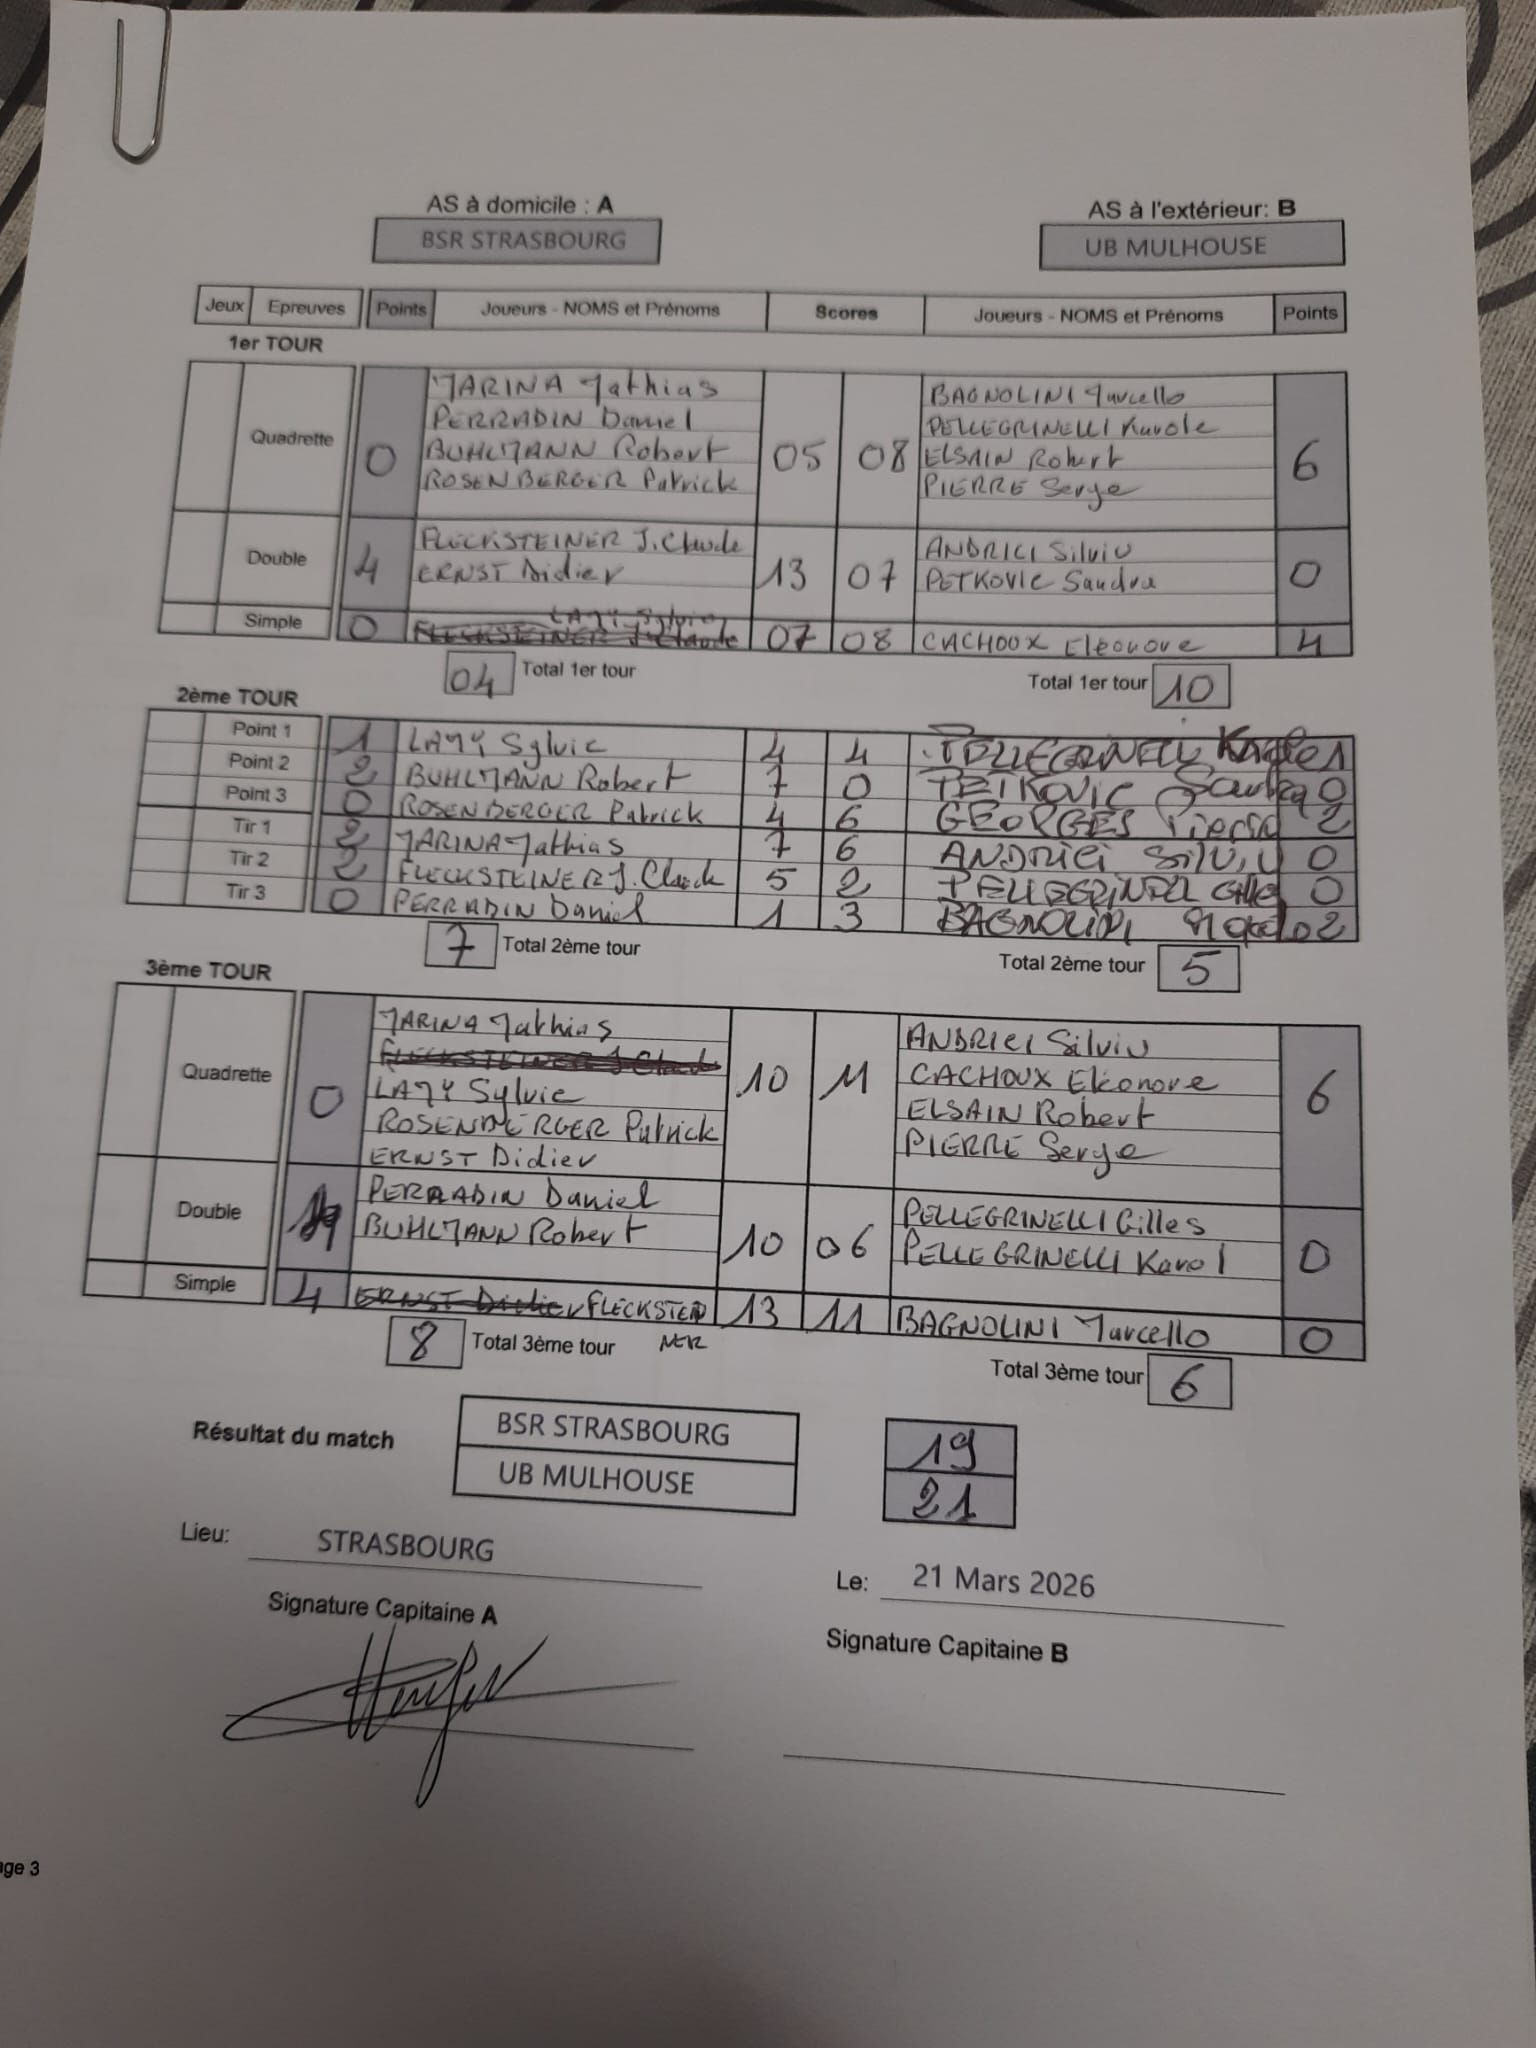 AS à domicile : A
AS à l'extérieur: B
BSR STRASBOURG
UB MULHOUSE
Jeux Epreuves Points Joueurs - NOMS et Prénoms Scores Joueurs - NOMS et Prénoms Points
1er TOUR
Quadrette 0 05 08 6
MARINA Mathias
PERRADIN Daniel
BUHLMANN Robert
ROSENBERGER Patrick
BAGNOLINI Marcello
PELLEGRINELLI Karole
ELSAIN Robert
PIERRE Serge
Double 4 13 07 0
FLECKSTEINER J.Claude
ERNST Didier
ANDRICI Silviu
PETKOVIC Sandra
Simple 0 LAMY Sylvie 07 08 CACHOUX Eléonore 4
FLECKSTEINER J.Claude
04 Total 1er tour
Total 1er tour 10
2ème TOUR
Point 1 1 LAMY Sylvie 4 4 PELLEGRINELLI Karole 1
Point 2 2 BUHLMANN Robert 7 0 PETKOVIC Sandra 0
Point 3 0 ROSENBERGER Patrick 4 6 GEORGES Pierre 2
Tir 1 2 MARINA Mathias 7 6 ANDRICI Silviu 0
Tir 2 2 FLECKSTEINER J.Claude 5 2 PELLEGRINELLI Gilles 0
Tir 3 0 PERRADIN Daniel 1 3 BAGNOLINI 2
7 Total 2ème tour
Total 2ème tour 5
3ème TOUR
Quadrette 0 10 11 6
MARINA Mathias
FLECKSTEINER J Claude
LAMY Sylvie
ROSENBERGER Patrick
ERNST Didier
ANDRICI Silviu
CACHOUX Eléonore
ELSAIN Robert
PIERRE Serge
Double 4 10 06 0
PERRADIN Daniel
BUHLMANN Robert
PELLEGRINELLI Gilles
PELLEGRINELLI Karol
Simple 4 ERNST Didier FLECKSTEI 13 11 BAGNOLINI Marcello 0
NER
8 Total 3ème tour
Total 3ème tour 6
Résultat du match
BSR STRASBOURG 19
UB MULHOUSE 21
Lieu: STRASBOURG
Le: 21 Mars 2026
Signature Capitaine A
Signature Capitaine B
age 3